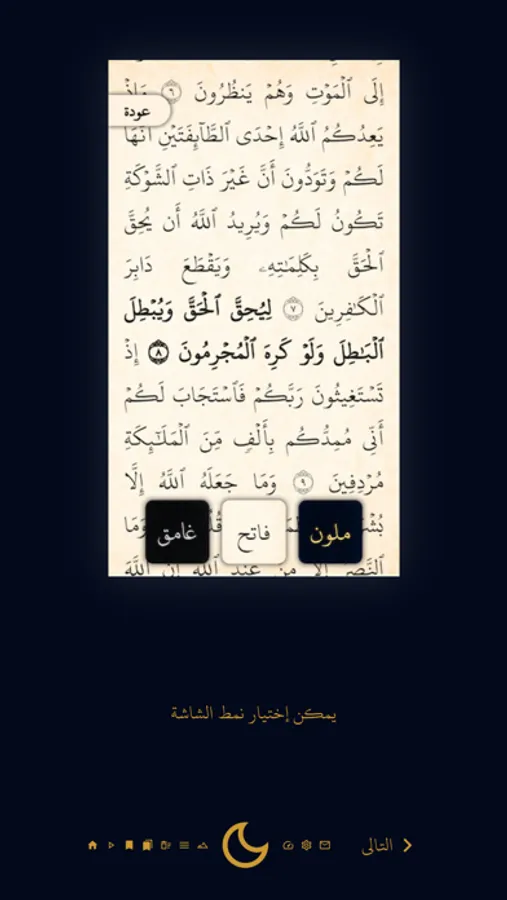 إِلَى ٱلْمَوْتِ وَهُمْ يَنظُرُونَ ٦ وَإِذْ
عودة
يَعِدُكُمُ ٱللَّهُ إِحْدَى ٱلطَّآئِفَتَيْنِ أَنَّهَا
لَكُمْ وَتَوَدُّونَ أَنَّ غَيْرَ ذَاتِ ٱلشَّوْكَةِ
تَكُونُ لَكُمْ وَيُرِيدُ ٱللَّهُ أَن يُحِقَّ
ٱلْحَقَّ بِكَلِمَـٰتِهِۦ وَيَقْطَعَ دَابِرَ
ٱلْكَـٰفِرِينَ ٧ لِيُحِقَّ ٱلْحَقَّ وَيُبْطِلَ
ٱلْبَـٰطِلَ وَلَوْ كَرِهَ ٱلْمُجْرِمُونَ ٨ إِذْ
تَسْتَغِيثُونَ رَبَّكُمْ فَٱسْتَجَابَ لَكُمْ
أَنِّى مُمِدُّكُم بِأَلْفٍ مِّنَ ٱلْمَلَـٰٓئِكَةِ
مُرْدِفِينَ ٩ وَمَا جَعَلَهُ ٱللَّهُ إِلَّا
وَمَا
ملون
فاتح
غامق
ٱلنَّصْرُ إِلَّا مِنْ عِندِ ٱللَّهِ إِنَّ ٱللَّهَ
يمكن إختيار نمط الشاشة
التالى